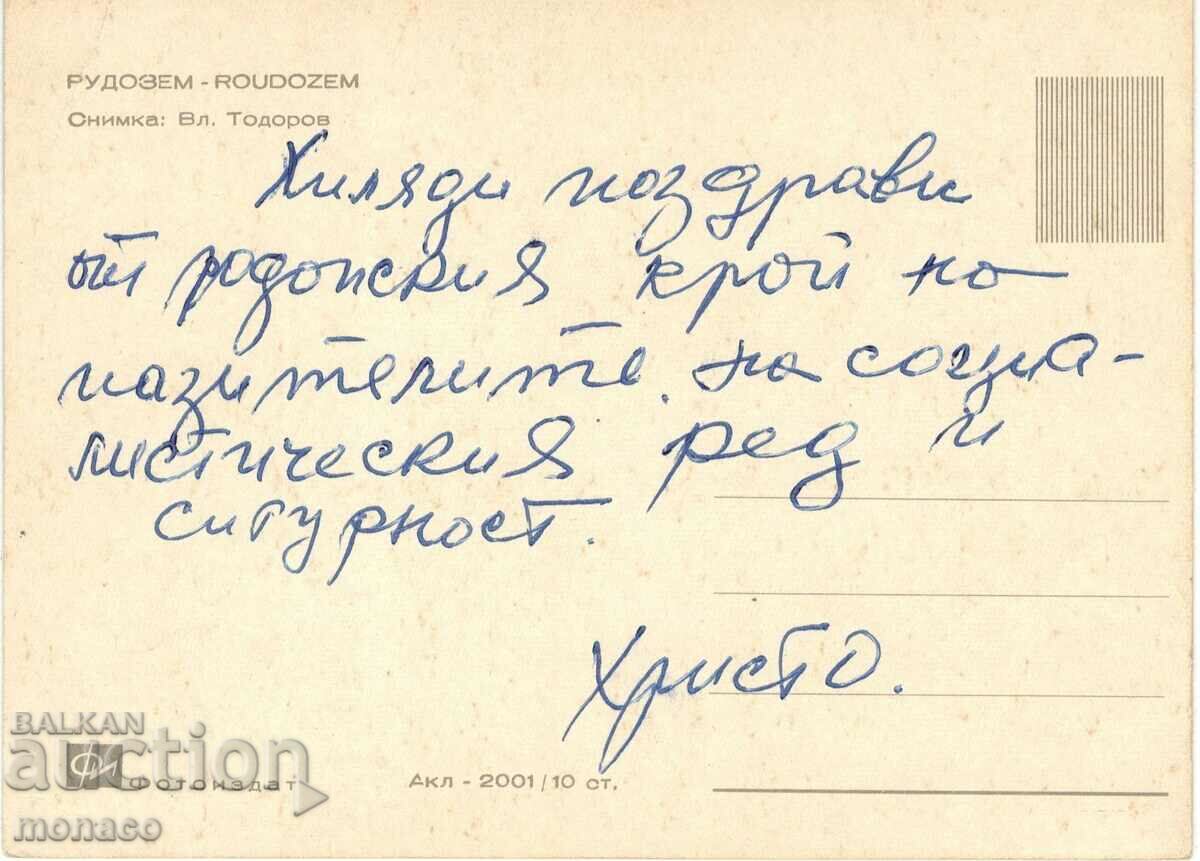 РУДОЗЕМ - ROUDOZEM
Снимка: Вл. Тодоров
Хиляди поздрави
от родопския край на
пазителите на социа-
листическия ред и
сигурност.
Христо.
BALKAN
auction
Фотоиздат
Акл - 2001/10 ст.
monaco